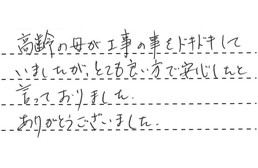 高齢の母が工事の事をドキドキして
いましたが、とても良い方で安心したと
言っておりました。
ありがとうございました。